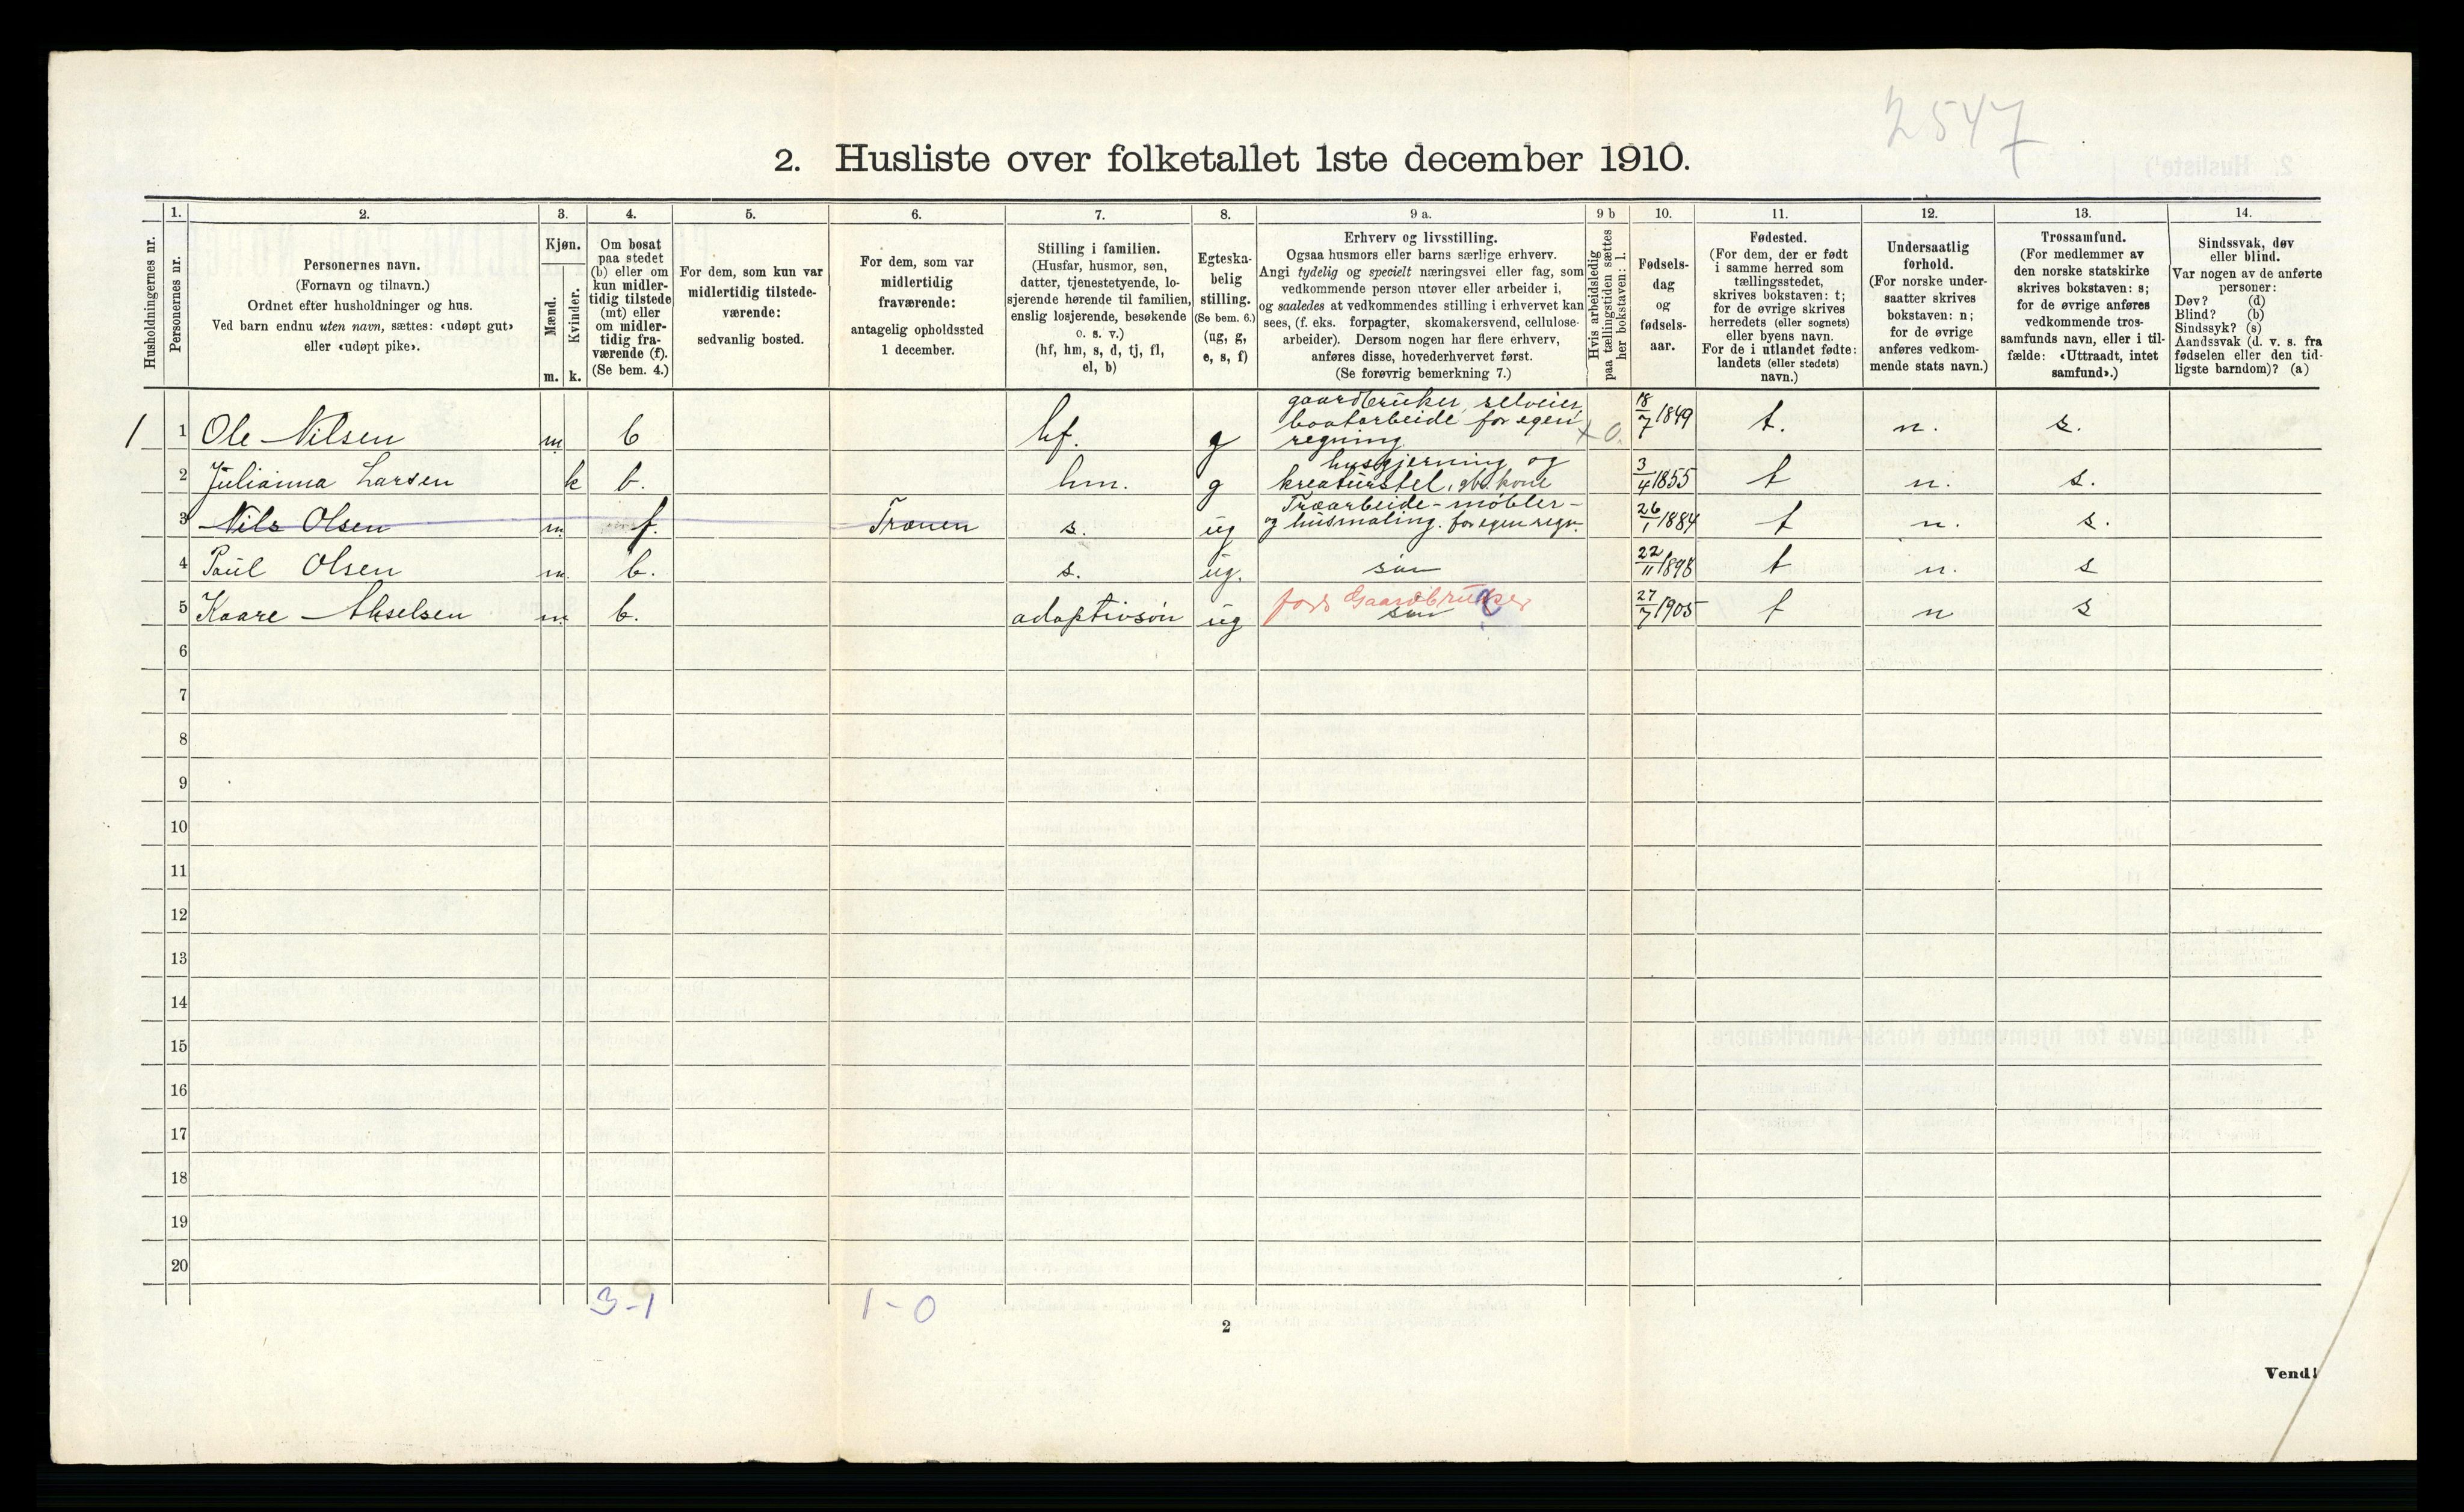 2547
2. Husliste over folketallet 1ste december 1910.
Husholdningernes nr.
1.
Personernes nr.
2.
Personernes navn.
(Fornavn og tilnavn.)
Ordnet efter husholdninger og hus.
Ved barn endnu uten navn, sættes: «udøpt gut»
eller «udøpt pike».
3.
Kjøn.
Mænd.
Kvinder.
m. k.
4.
Om bosat
paa stedet
(b) eller om
kun midler-
tidig tilstede
(mt) eller
om midler-
tidig fra-
værende (f).
(Se bem. 4.)
5.
For dem, som kun var
midlertidig tilstede-
værende:
sedvanlig bosted.
6.
For dem, som var
midlertidig
fraværende:
antagelig opholdssted
1 december.
7.
Stilling i familien.
(Husfar, husmor, søn,
datter, tjenestetyende, lo-
sjerende hørende til familien,
enslig losjerende, besøkende
o. s. v.)
(hf, hm, s, d, tj, fl,
el, b)
8.
Egteska-
belig
stilling.
(Se bem. 6.)
(ug, g,
e, s, f)
9 a.
Erhverv og livsstilling.
Ogsaa husmors eller barns særlige erhverv.
Angi tydelig og specielt næringsvei eller fag, som
vedkommende person utøver eller arbeider i,
og saaledes at vedkommendes stilling i erhvervet kan
sees, (f. eks. forpagter, skomakersvend, cellulose-
arbeider). Dersom nogen har flere erhverv,
anføres disse, hovederhvervet først.
(Se forøvrig bemerkning 7.)
9 b
Hvis arbeidsledig
paa tællingstiden sættes
her bokstaven: l.
10.
Fødsels-
dag
og
fødsels-
aar.
11.
Fødested.
(For dem, der er født
i samme herred som
tællingsstedet,
skrives bokstaven: t;
for de øvrige skrives
herredets (eller sognets)
eller byens navn.
For de i utlandet fødte:
landets (eller stedets)
navn.)
12.
Undersaatlig
forhold.
(For norske under-
saatter skrives
bokstaven: n;
for de øvrige
anføres vedkom-
mende stats navn.)
13.
Trossamfund.
(For medlemmer av
den norske statskirke
skrives bokstaven: s;
for de øvrige anføres
vedkommende tros-
samfunds navn, eller i til-
fælde: «Uttraadt, intet
samfund».)
14.
Sindssvak, døv
eller blind.
Var nogen av de anførte
personer:
Døv? (d)
Blind? (b)
Sindssyk? (s)
Aandssvak (d. v. s. fra
fødselen eller den tid-
ligste barndom)? (a)
1 1 Ole Nilsen m b hf. g gaardbruker, selveier, baatarbeide for egen regning x 0. 18/7 1849 t. n. s.
2 Julianna Larsen k b. hm. g husgjerning og kreaturstel, gbr. kone 3/4 1855 t n. s.
3 Nils Olsen m f. Trænen s. ug Træarbeide-møbler- og husmaling. for egen regn. 26/1 1884 t n. s.
4 Paul Olsen m. b. s. ug. søn 22/11 1898 t n. s
5 Kaare Akselsen m. b. adoptivsøn ug fors Gaardbruker søn 27/7 1905 t n s
6
7
8
9
10
11
12
13
14
15
16
17
18
19
20
3-1 1-0
2
Vend!